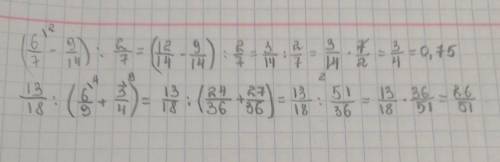 (6/7^\2 - 9/14) : 2/7 = (12/14 - 9/14) : 2/7 = 3/14 : 2/7 = 3/14 · 7/2 = 3/4 = 0,75
13/18 : (6/9^\4 + 3/4^\9) = 13/18 : (24/36 + 27/36) = 13/18 : 51/36 = 13/18 · 36^2/51 = 26/51